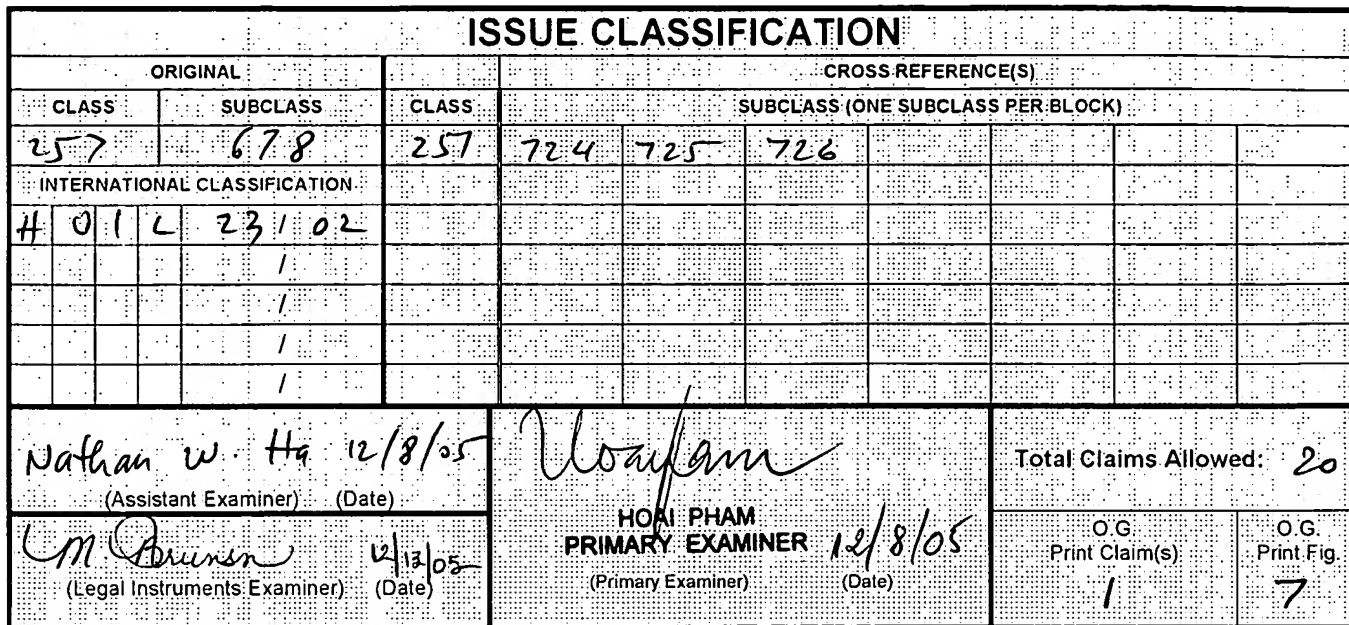 ISSUE CLASSIFICATION
ORIGINAL CROSS REFERENCE(S)
CLASS SUBCLASS CLASS SUBCLASS (ONE SUBCLASS PER BLOCK)
257 678 257 724 725 726
INTERNATIONAL CLASSIFICATION
H 0 1 L 23 / 02
/
/
/
/
Nathan W. Ha 12/8/05
(Assistant Examiner) (Date)
M 12/13/05
(Legal Instruments Examiner) (Date)
HOAI PHAM
PRIMARY EXAMINER 12/8/05
(Primary Examiner) (Date)
Total Claims Allowed: 20
O.G. Print Claim(s)
1
O.G. Print Fig.
7